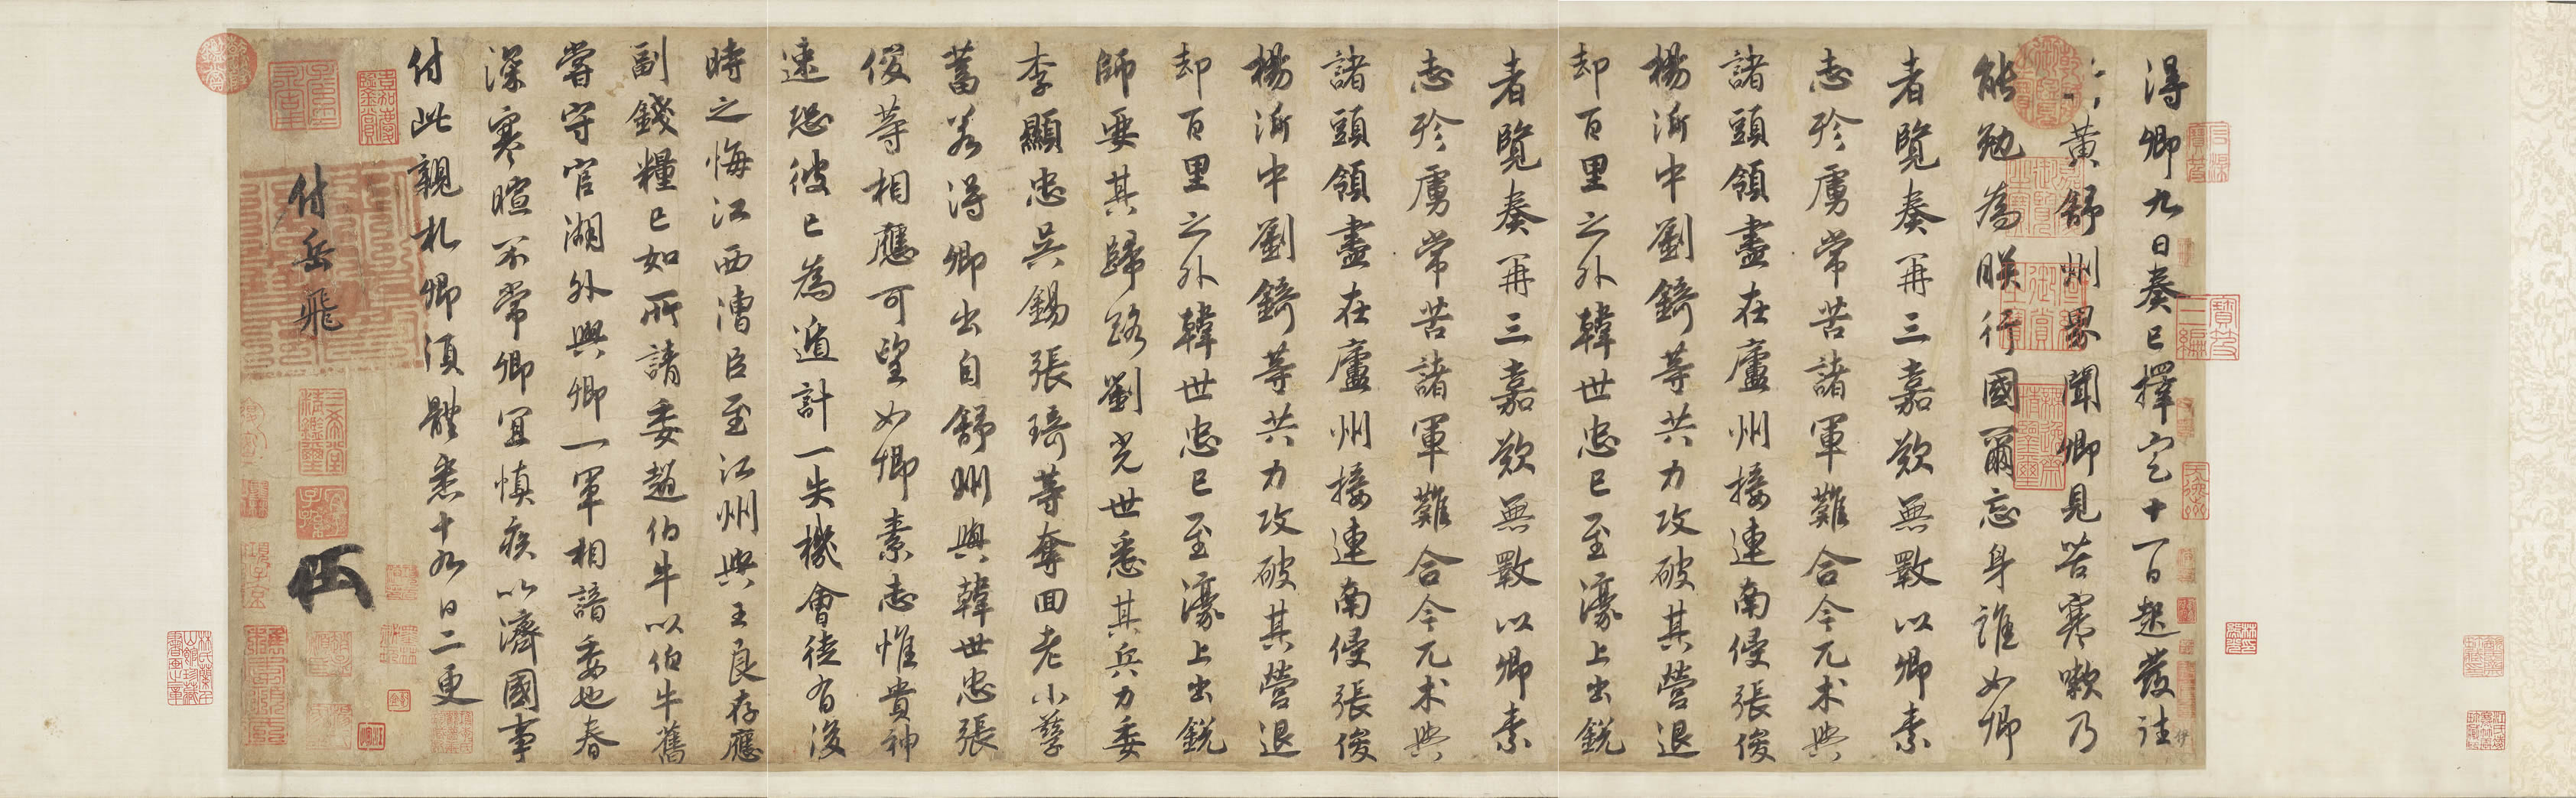 得卿九日奏已擇定十一日起發往
黃舒州界聞卿見苦寒嗽乃
能勉為朕行國爾忘身誰如卿
者覽奏再三嘉歎無斁以卿素
志殄虜常苦諸軍難合今兀术與
諸頭領盡在廬州接連南侵張俊
楊沂中劉錡等共力攻破其營退
却百里之外韓世忠已至濠上出銳
者覽奏再三嘉歎無斁以卿素
志殄虜常苦諸軍難合今兀术與
諸頭領盡在廬州接連南侵張俊
楊沂中劉錡等共力攻破其營退
却百里之外韓世忠已至濠上出銳
師要其歸路劉光世悉其兵力委
李顯忠吳錫張琦等奪回老小孳
蓄若得卿出自舒州與韓世忠張
俊等相應可望如卿素志惟貴神
速恐彼已為遁計一失機會徒有後
時之悔江西漕臣至江州與王良存應
副錢糧已如所請委趙伯牛以伯牛舊
嘗守官湖外與卿一軍相諳委也春
深寒暄不常卿宜慎疾以濟國事
付此親札卿須體悉十九日二更
付岳飛